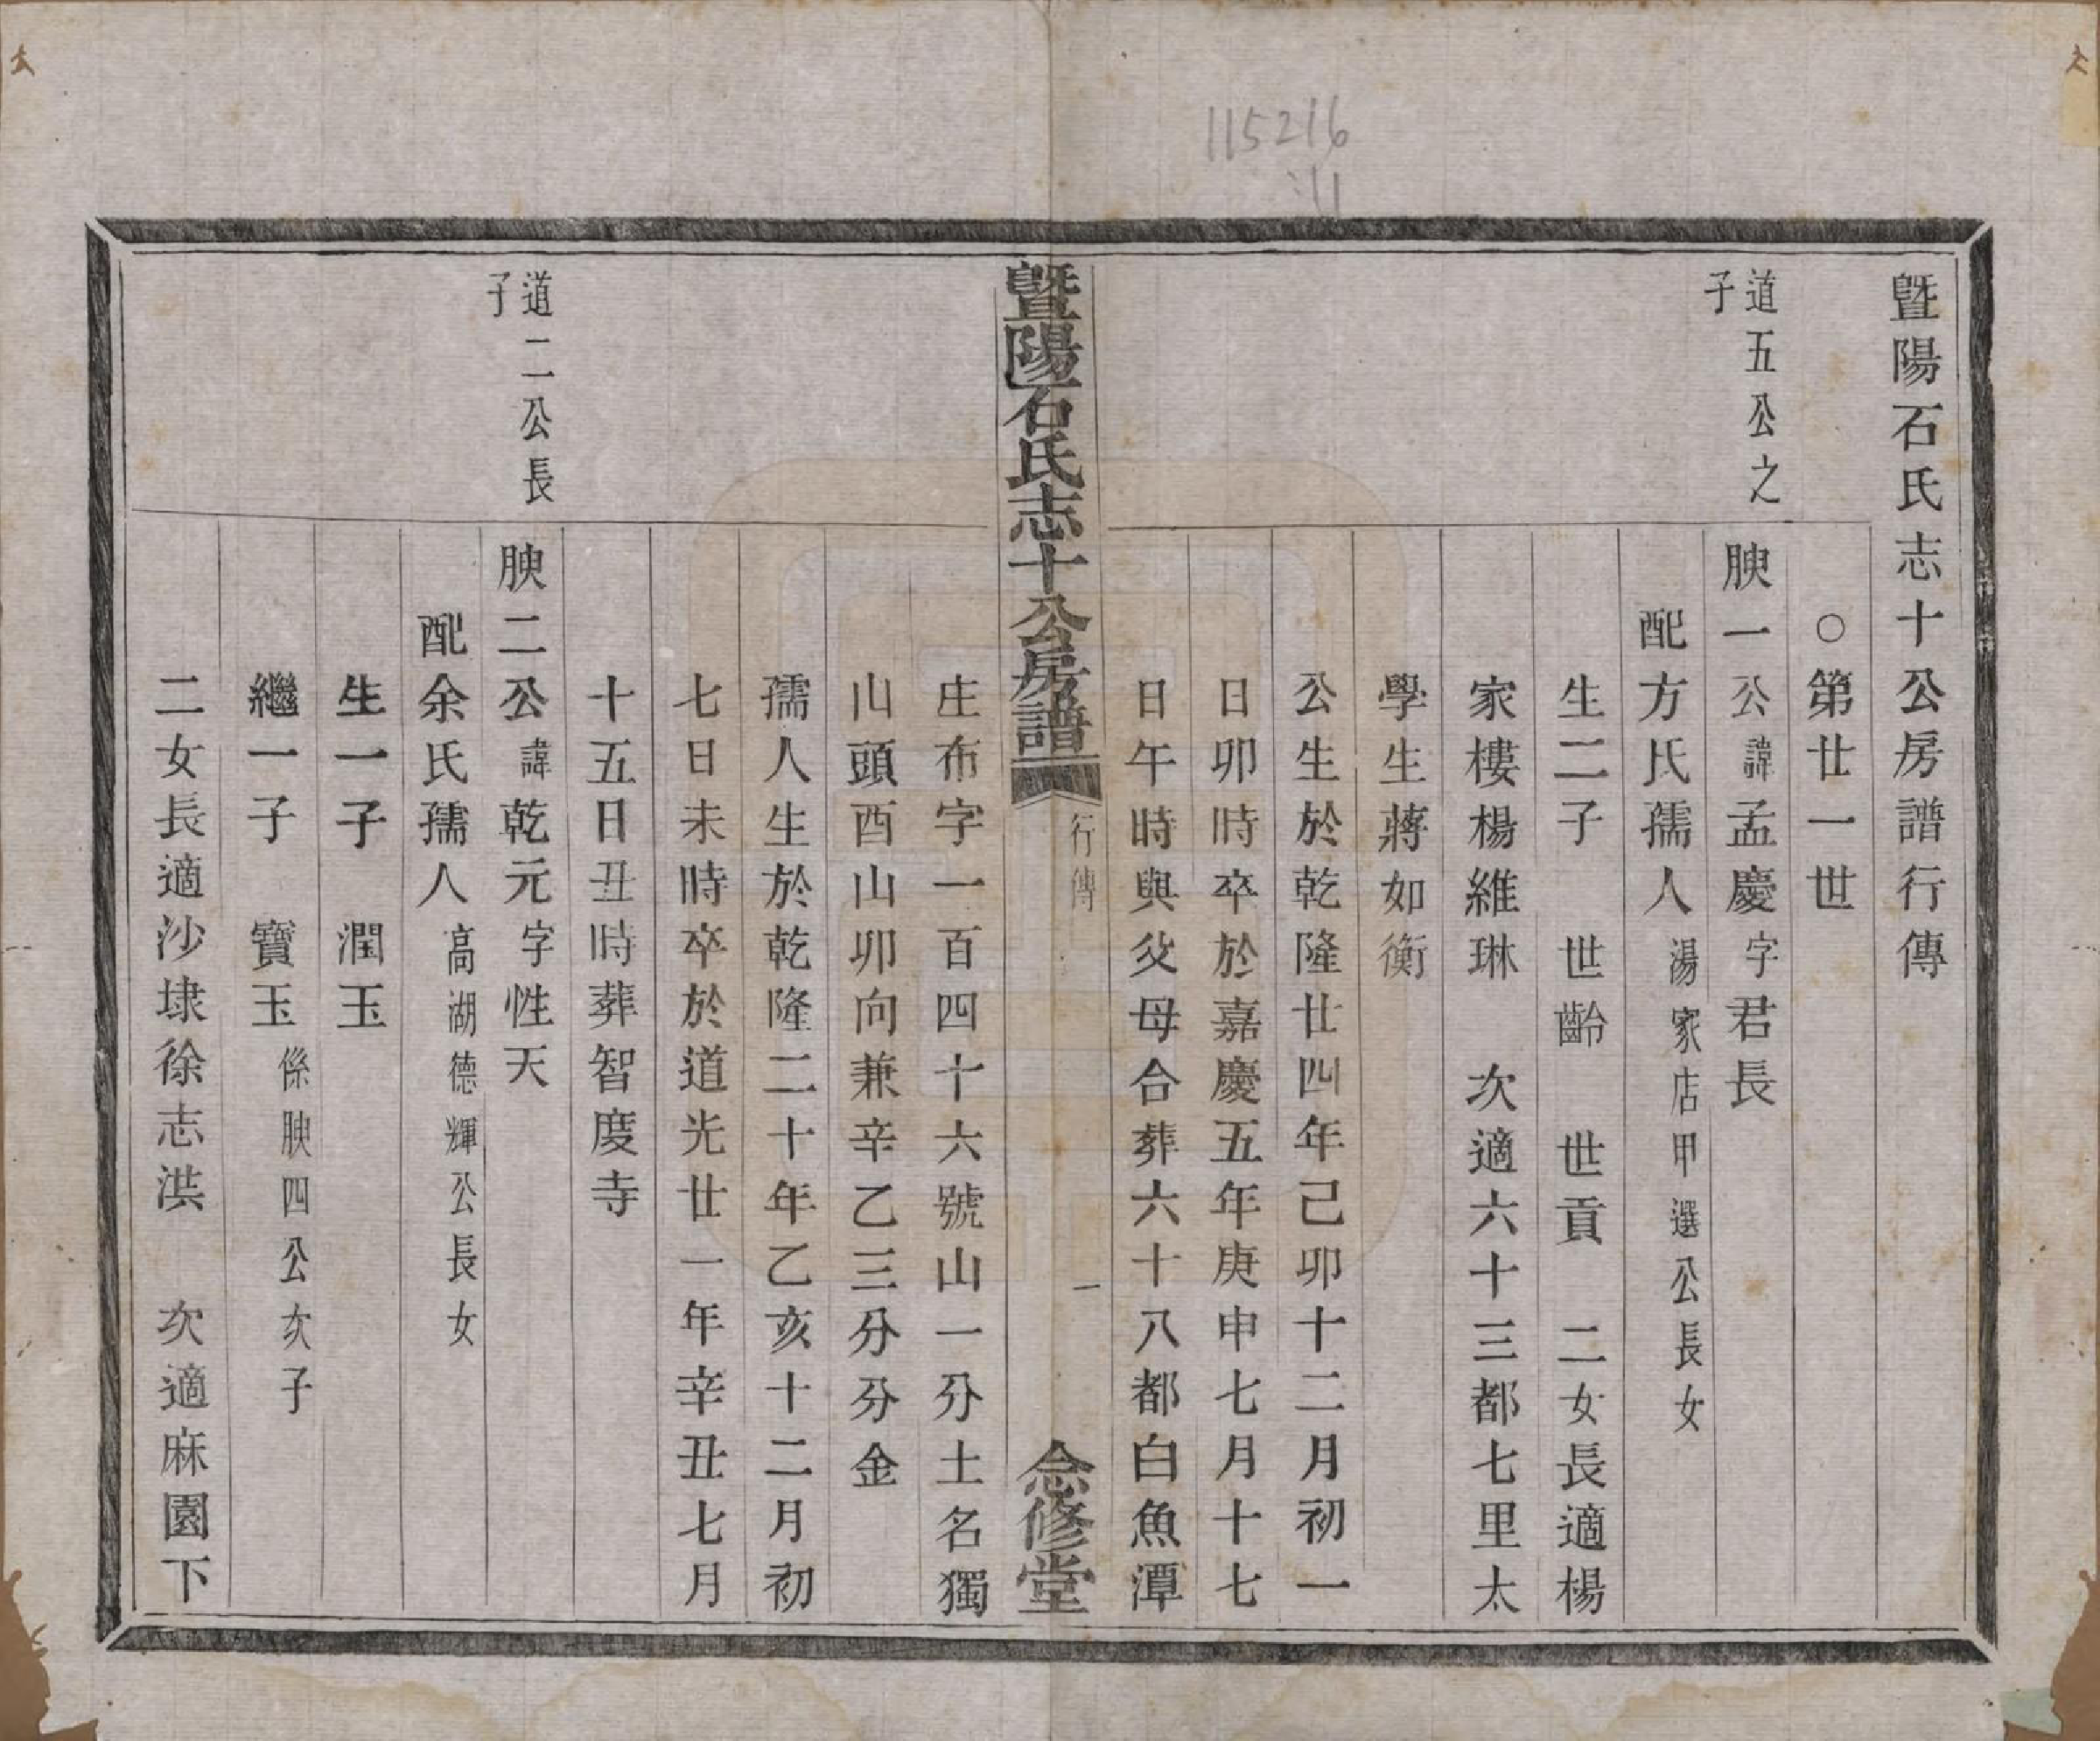 115216
:11
暨陽石氏志十公房譜行傳
○第廿一世
道五公之
子
腴一公諱孟慶字君長
配方氏孺人湯家店甲選公長女
生二子 世齡 世貢 二女長適楊
家樓楊維琳 次適六十三都七里太
學生蔣如衡
公生於乾隆廿四年己卯十二月初一
日卯時卒於嘉慶五年庚申七月十七
日午時與父母合葬六十八都白魚潭
暨陽石氏志十公房譜 行傳 一 念修堂
庄布字一百四十六號山一分土名獨
山頭酉山卯向兼辛乙三分分金
孺人生於乾隆二十年乙亥十二月初
七日未時卒於道光廿一年辛丑七月
十五日丑時葬智度寺
道二公長
子
腴二公諱乾元字性天
配余氏孺人高湖德輝公長女
生一子 潤玉
繼一子 寶玉係腴四公次子
二女長適沙埭徐志洪 次適麻園下